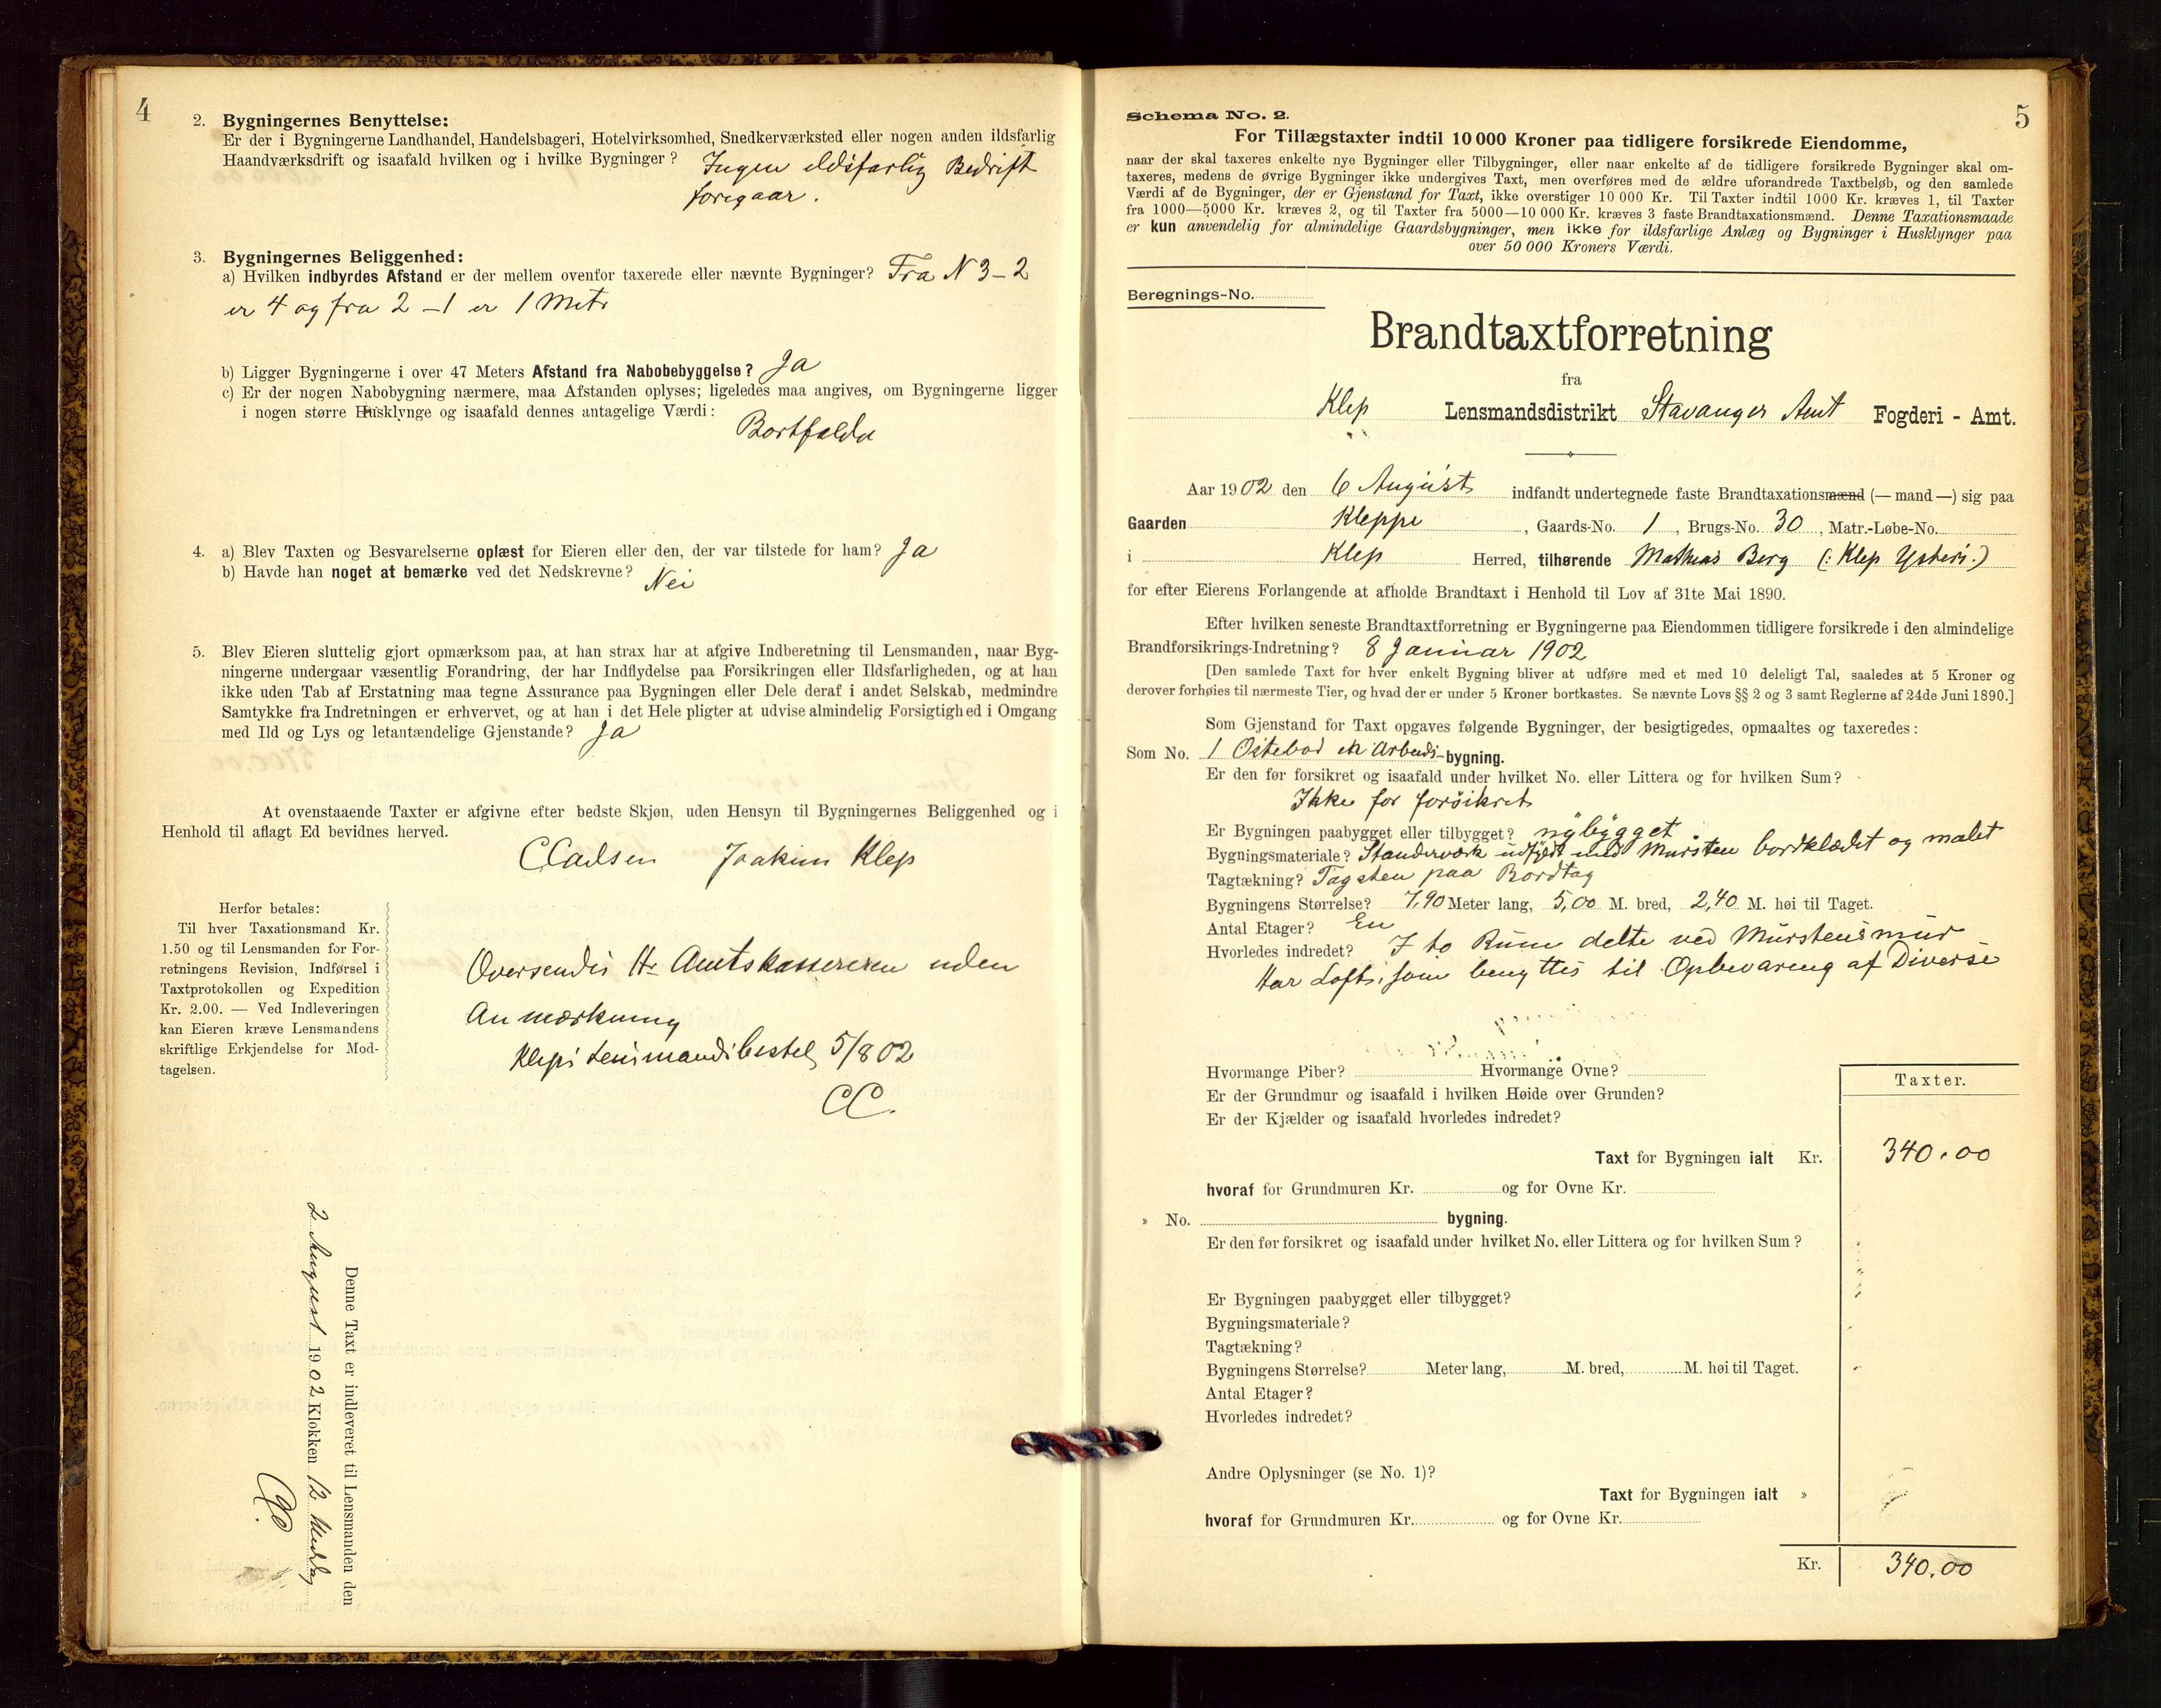 4
2. Bygningernes Benyttelse:
Er der i Bygningerne Landhandel, Handelsbageri, Hotelvirksomhed, Snedkerværksted eller nogen anden ildsfarlig
Haandværksdrift og isaafald hvilken og i hvilke Bygninger? Ingen ildsfarlig Bedrift
foregaar.
3. Bygningernes Beliggenhed:
a) Hvilken indbyrdes Afstand er der mellem ovenfor taxerede eller nævnte Bygninger? Fra N 3-2
er 4 og fra 2-1 er 1 Metr
b) Ligger Bygningerne i over 47 Meters Afstand fra Nabobebyggelse? Ja
c) Er der nogen Nabobygning nærmere, maa Afstanden oplyses; ligeledes maa angives, om Bygningerne ligger
i nogen større Husklynge og isaafald dennes antagelige Værdi:
Bortfalda
4. a) Blev Taxten og Besvarelserne oplæst for Eieren eller den, der var tilstede for ham? Ja
b) Havde han noget at bemærke ved det Nedskrevne? Nei
5. Blev Eieren sluttelig gjort opmærksom paa, at han strax har at afgive Indberetning til Lensmanden, naar Byg-
ningerne undergaar væsentlig Forandring, der har Indflydelse paa Forsikringen eller Ildsfarligheden, og at han
ikke uden Tab af Erstatning maa tegne Assurance paa Bygningen eller Dele deraf i andet Selskab, medmindre
Samtykke fra Indretningen er erhvervet, og at han i det Hele pligter at udvise almindelig Forsigtighed i Omgang
med Ild og Lys og letantændelige Gjenstande? Ja
At ovenstaaende Taxter er afgivne efter bedste Skjøn, uden Hensyn til Bygningernes Beliggenhed og i
Henhold til aflagt Ed bevidnes herved.
C Carlsen Joakim Klep
Herfor betales:
Til hver Taxationsmand Kr.
1.50 og til Lensmanden for For-
retningens Revision, Indførsel i
Taxtprotokollen og Expedition
Kr. 2.00. — Ved Indleveringen
kan Eieren kræve Lensmandens
skriftlige Erkjendelse for Mod-
tagelsen.
Oversendes Hr Amtskassereren uden
Anmærkning
Klep Lensmandsbestel 5/8 02
CC.
Denne Taxt er indleveret til Lensmanden den
2 August 1902 Klokken 12 Middag
CC.
5
Schema No. 2.
For Tillægstaxter indtil 10 000 Kroner paa tidligere forsikrede Eiendomme,
naar der skal taxeres enkelte nye Bygninger eller Tilbygninger, eller naar enkelte af de tidligere forsikrede Bygninger skal om-
taxeres, medens de øvrige Bygninger ikke undergives Taxt, men overføres med de ældre uforandrede Taxtbeløb, og den samlede
Værdi af de Bygninger, der er Gjenstand for Taxt, ikke overstiger 10 000 Kr. Til Taxter indtil 1000 Kr. kræves 1, til Taxter
fra 1000—5000 Kr. kræves 2, og til Taxter fra 5000—10 000 Kr. kræves 3 faste Brandtaxationsmænd. Denne Taxationsmaade
er kun anvendelig for almindelige Gaardsbygninger, men ikke for ildsfarlige Anlæg og Bygninger i Husklynger paa
over 50 000 Kroners Værdi.
Beregnings-No.
Brandtaxtforretning
fra
Klep Lensmandsdistrikt Stavanger Amt Fogderi - Amt.
Aar 1902 den 6 August indfandt undertegnede faste Brandtaxationsmænd (— mand —) sig paa
Gaarden Kleppe, Gaards-No. 1, Brugs-No. 30, Matr.-Løbe-No.
i Klep Herred, tilhørende Mathias Berg (: Klep Ysteri :)
for efter Eierens Forlangende at afholde Brandtaxt i Henhold til Lov af 31te Mai 1890.
Efter hvilken seneste Brandtaxtforretning er Bygningerne paa Eiendommen tidligere forsikrede i den almindelige
Brandforsikrings-Indretning? 8 Januar 1902
[Den samlede Taxt for hver enkelt Bygning bliver at udføre med et med 10 deleligt Tal, saaledes at 5 Kroner og
derover forhøies til nærmeste Tier, og hvad der er under 5 Kroner bortkastes. Se nævnte Lovs §§ 2 og 3 samt Reglerne af 24de Juni 1890.]
Som Gjenstand for Taxt opgaves følgende Bygninger, der besigtigedes, opmaaltes og taxeredes:
Som No. 1 Ostebod en Arbeids-bygning.
Er den før forsikret og isaafald under hvilket No. eller Littera og for hvilken Sum?
Ikke for forsikret
Er Bygningen paabygget eller tilbygget? nybygget
Bygningsmateriale? Standerværk udfyldt med Mursten bordklædet og malet
Tagtækning? Tagsten paa Bordtag
Bygningens Størrelse? 7,90 Meter lang, 5,00 M. bred, 2,40 M. høi til Taget.
Antal Etager? En
Hvorledes indredet? I to Rum delte ved Murstensmur
Har Loft, som benyttes til Opbevaring af Diverse
Hvormange Piber? Hvormange Ovne?
Er der Grundmur og isaafald i hvilken Høide over Grunden?
Er der Kjælder og isaafald hvorledes indredet?
Taxter.
Taxt for Bygningen ialt Kr. 340.00
hvoraf for Grundmuren Kr. og for Ovne Kr.
» No. bygning.
Er den før forsikret og isaafald under hvilket No. eller Littera og for hvilken Sum?
Er Bygningen paabygget eller tilbygget?
Bygningsmateriale?
Tagtækning?
Bygningens Størrelse? Meter lang, M. bred, M. høi til Taget.
Antal Etager?
Hvorledes indredet?
Andre Oplysninger (se No. 1)?
Taxt for Bygningen ialt »
hvoraf for Grundmuren Kr. og for Ovne Kr.
Kr. 340.00